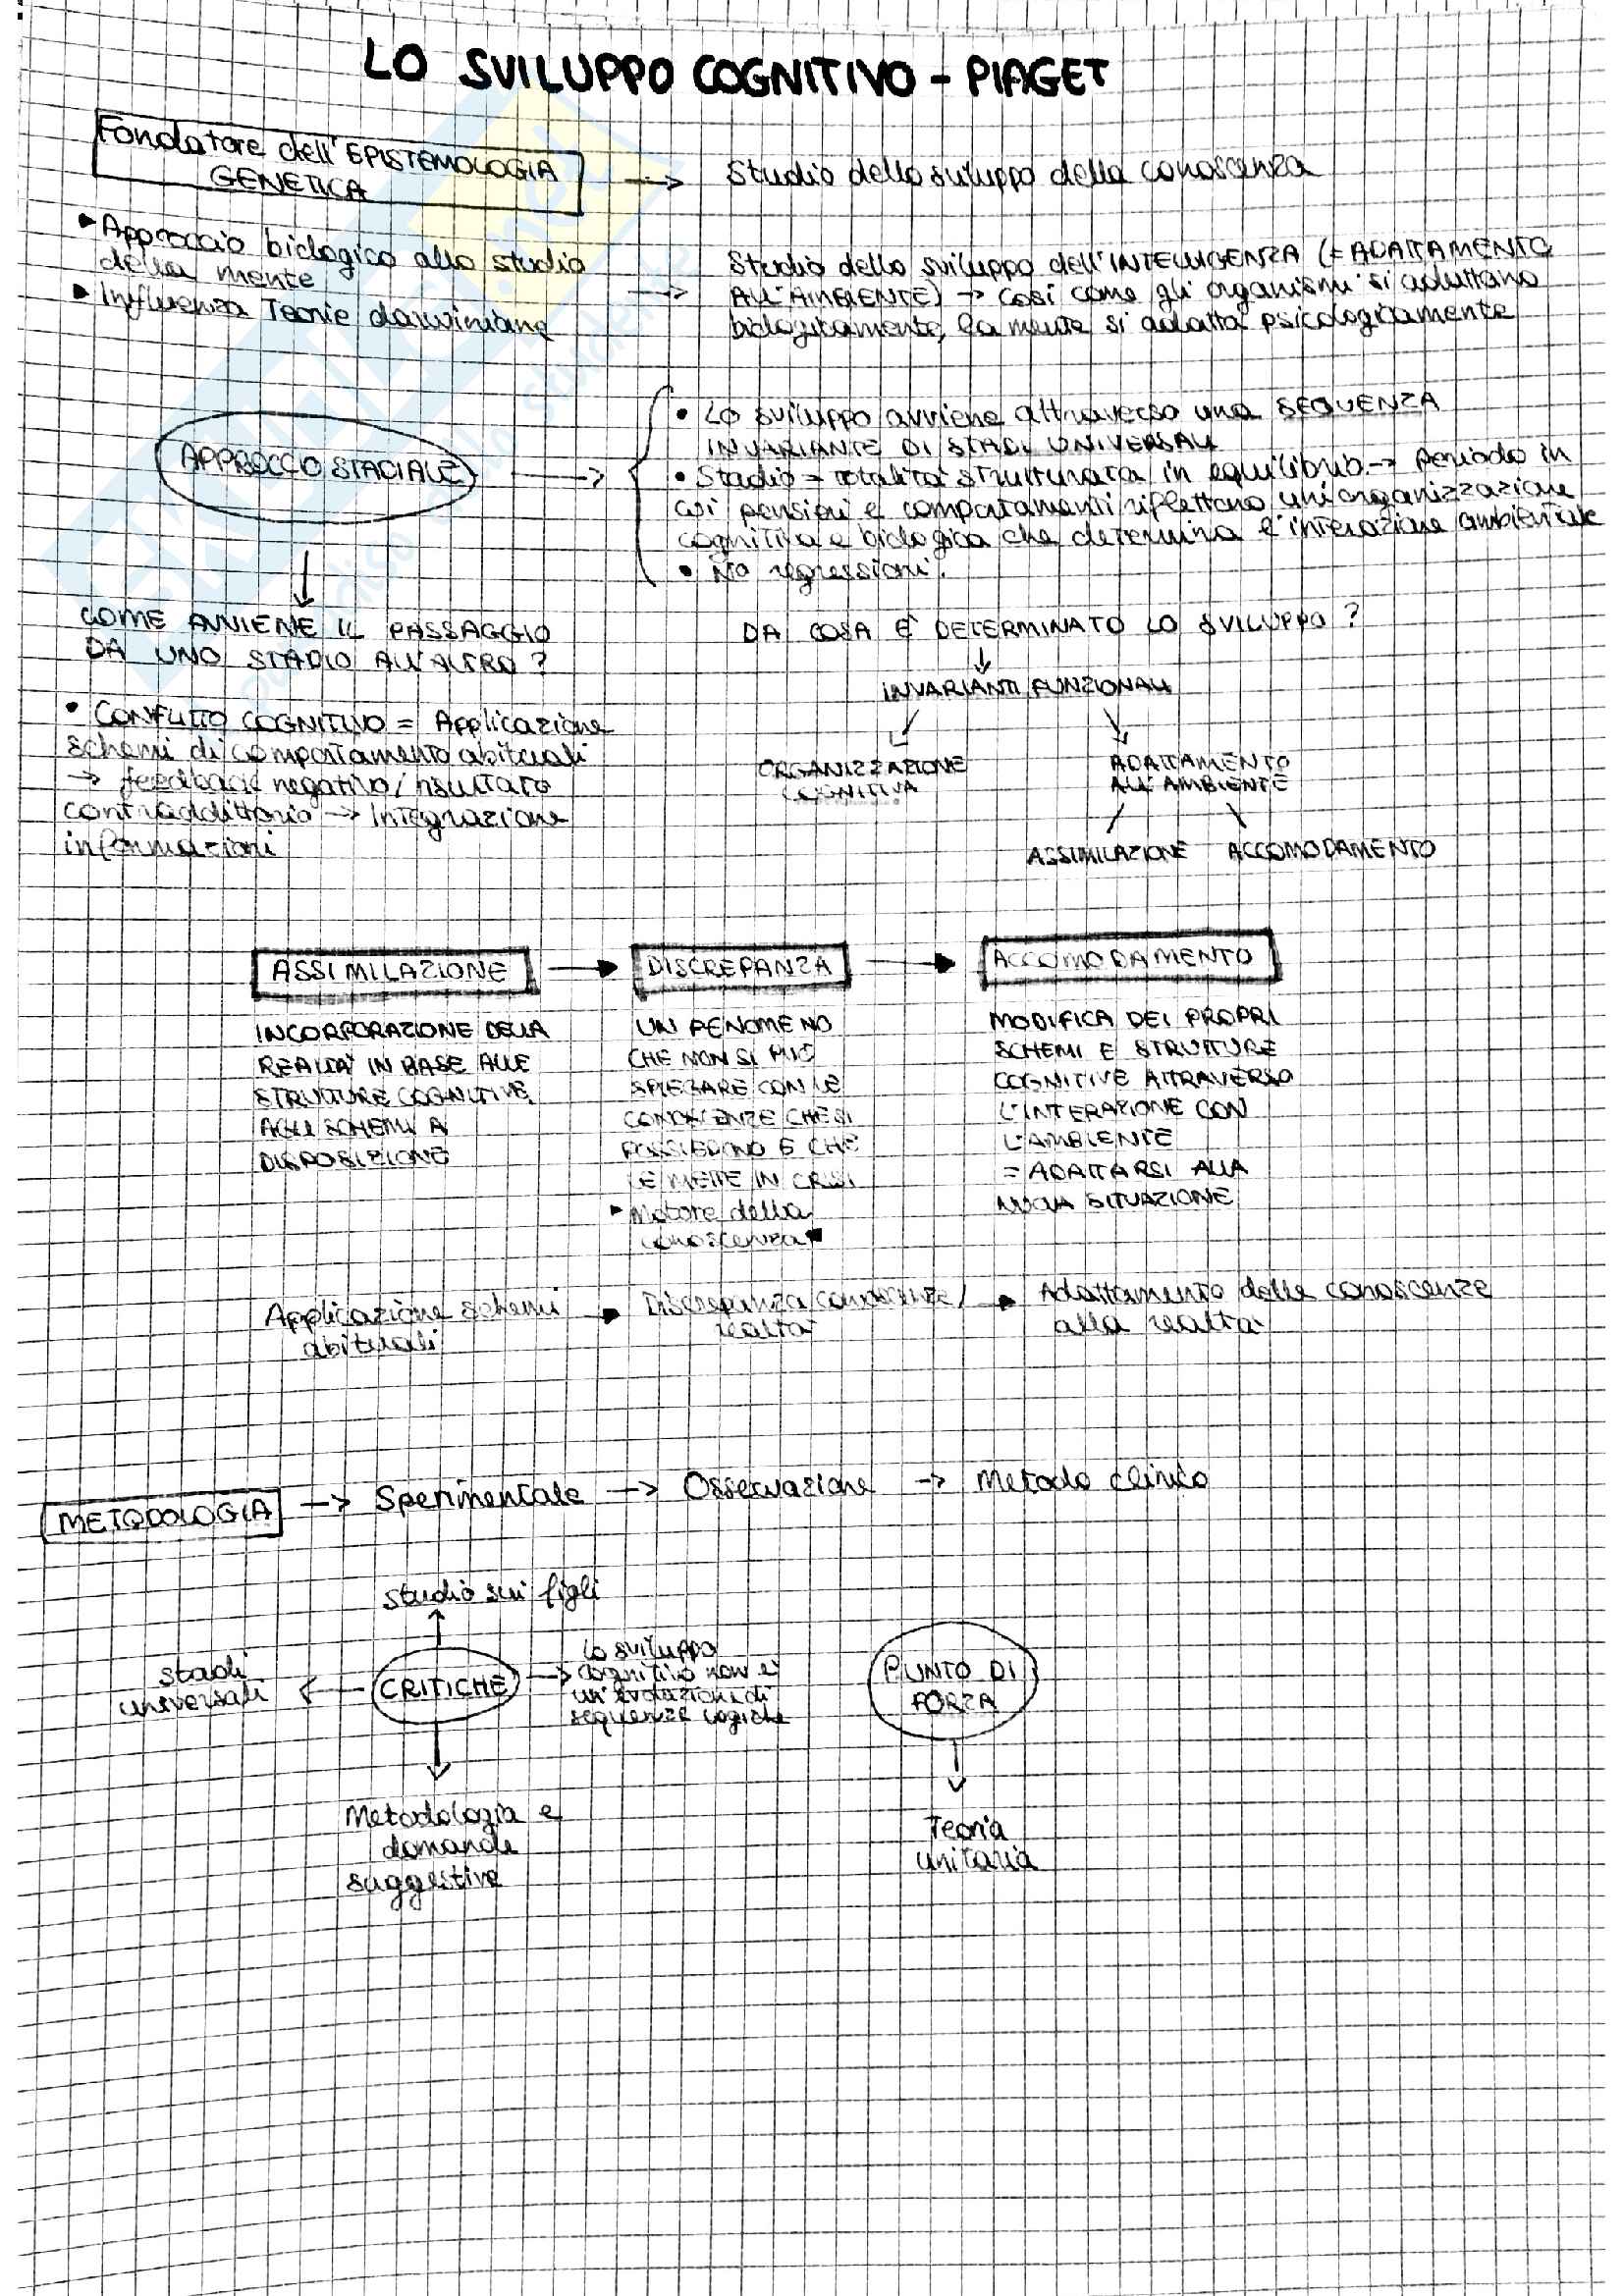 LO SVILUPPO COGNITIVO - PIAGET
Fondatore dell'EPISTEMOLOGIA
GENETICA
→ Studio dello sviluppo della conoscenza
▸ Approccio biologico allo studio
della mente
▸ Influenza Teorie darwiniane
→ Studio dello sviluppo dell'INTELLIGENZA (= ADATTAMENTO
ALL'AMBIENTE) → così come gli organismi si adattano
biologicamente, la mente si adatta psicologicamente
APPROCCIO STADIALE →
• Lo sviluppo avviene attraverso una SEQUENZA
INVARIANTE DI STADI UNIVERSALI
• Stadio = totalità strutturata in equilibrio → periodo in
cui pensieri e comportamenti riflettono un'organizzazione
cognitiva e biologica che determina l'interazione ambientale
• No regressioni.
COME AVVIENE IL PASSAGGIO
DA UNO STADIO ALL'ALTRO?
• CONFLITTO COGNITIVO = Applicazione
schemi di comportamento abituali
→ feedback negativo/risultato
contraddittorio → Integrazione
informazioni
DA COSA E' DETERMINATO LO SVILUPPO?
INVARIANTI FUNZIONALI
ORGANIZZAZIONE
COGNITIVA
ADATTAMENTO
ALL'AMBIENTE
ASSIMILAZIONE ACCOMODAMENTO
ASSIMILAZIONE → DISCREPANZA → ACCOMODAMENTO
INCORPORAZIONE DELLA
REALTÀ IN BASE ALLE
STRUTTURE COGNITIVE,
AGLI SCHEMI A
DISPOSIZIONE
UN FENOMENO
CHE NON SI PUÒ
SPIEGARE CON LE
CONOSCENZE CHE SI
POSSIEDONO E CHE
LE METTE IN CRISI
▸ Motore della
conoscenza
MODIFICA DEI PROPRI
SCHEMI E STRUTTURE
COGNITIVE ATTRAVERSO
L'INTERAZIONE CON
L'AMBIENTE
= ADATTARSI ALLA
NUOVA SITUAZIONE
Applicazione schemi
abituali
→ Discrepanza conoscenze/
realtà
→ Adattamento delle conoscenze
alla realtà
METODOLOGIA → Sperimentale → Osservazione → Metodo clinico
studio sui figli
stadi
universali
CRITICHE
Lo sviluppo
cognitivo non è
un'evoluzione di
sequenze logiche
Metodologia e
domande
suggestive
PUNTO DI
FORZA
Teoria
unitaria